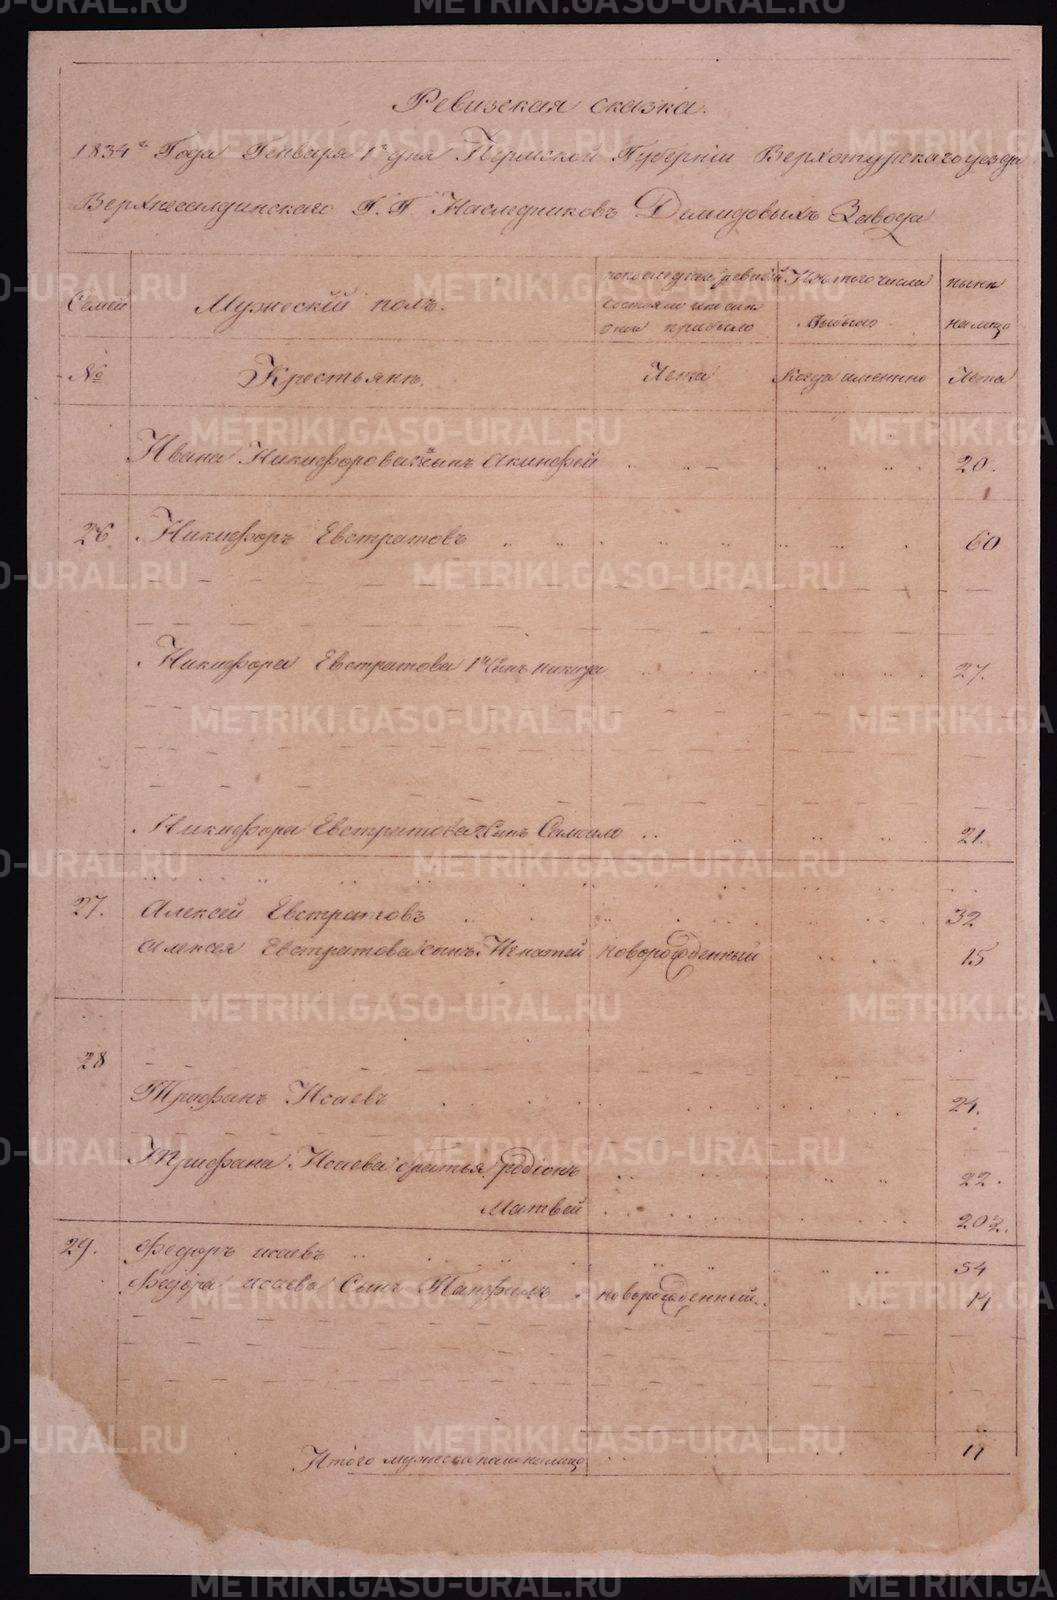 Ревизская сказка.
1834го Года Генваря 1го дня Пермской Губерніи Верхотурскаго уезда
Верхнесалдинскаго Г. Г. Наследниковъ Демидовыхъ Завода
Семей
Мужескій полъ.
по последней ревизіи
состояло и после
оной прибыло
Изъ того числа
выбыло
ныне
налицо
№
Крестьяне.
Лета
Когда именно
Лета
Ивана Никифорова сынъ Акинфей 20.
26 Никифоръ Евстратовъ 60
Никифора Евстратова 1й Сынъ Никита 27.
Никифора Евстратова Сынъ Самойло 21.
27. Алексей Евстратовъ 32
Алексея Евстратова сынъ Игнатей новорожденный 15
28
Трифанъ Исаевъ 24.
Трифана Исаева братья родіонъ 22.
Матвей 20
29. Федоръ исаевъ 34
Федора исаева Сынъ Панфилъ новорожденный 14
Итого мужеска пола налицо 11
METRIKI.GASO-URAL.RU